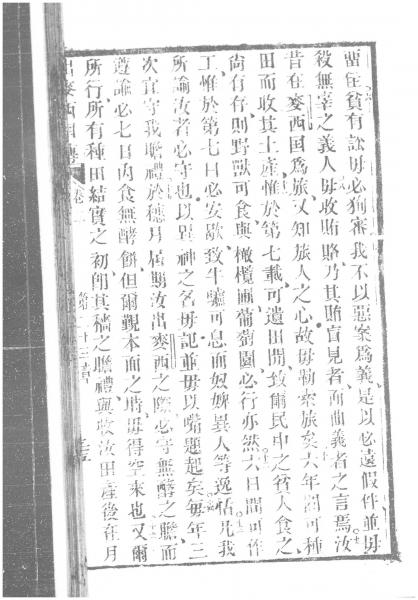 當在貧有訟毋必狥審我不以惡案爲義是以必遠假件並毋
殺無辜之義人毋收賄賂乃其賄盲見者而曲義者之言焉汝
昔在麥西囯爲旅又知旅人之心故毋勒索旅矣六年間可種
田而收其土產惟於第七載可遺田閒致爾民中之貧人食之
尙有存則野獸可食與橄欖圃葡萄園必行亦然六日間可作
工惟於第七日必安歇致牛驢可息而奴婢異人等逸怗凡我
所諭汝者必守也以異神之名毋記並毋以嘴題起矣每年三
次宜守我瞻禮於穗月屆期汝出麥西之際必守無酵之瞻而
遵諭必七日內食無酵餅但爾覲本面之時毋得空來也又爾
所行所有種田結實之初卽其穡之瞻禮與收汝田產後在月
出麥西囯傳
卷二
第二十三章